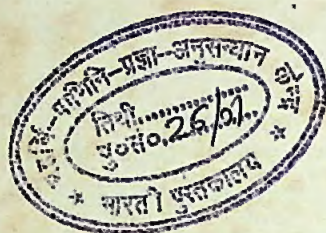 महर्षि-पाणिनि-प्रज्ञा-अनुसन्धान केन्द्र
तिथी..............
पु०सं०.26/01..
* भारती पुस्तकालय *